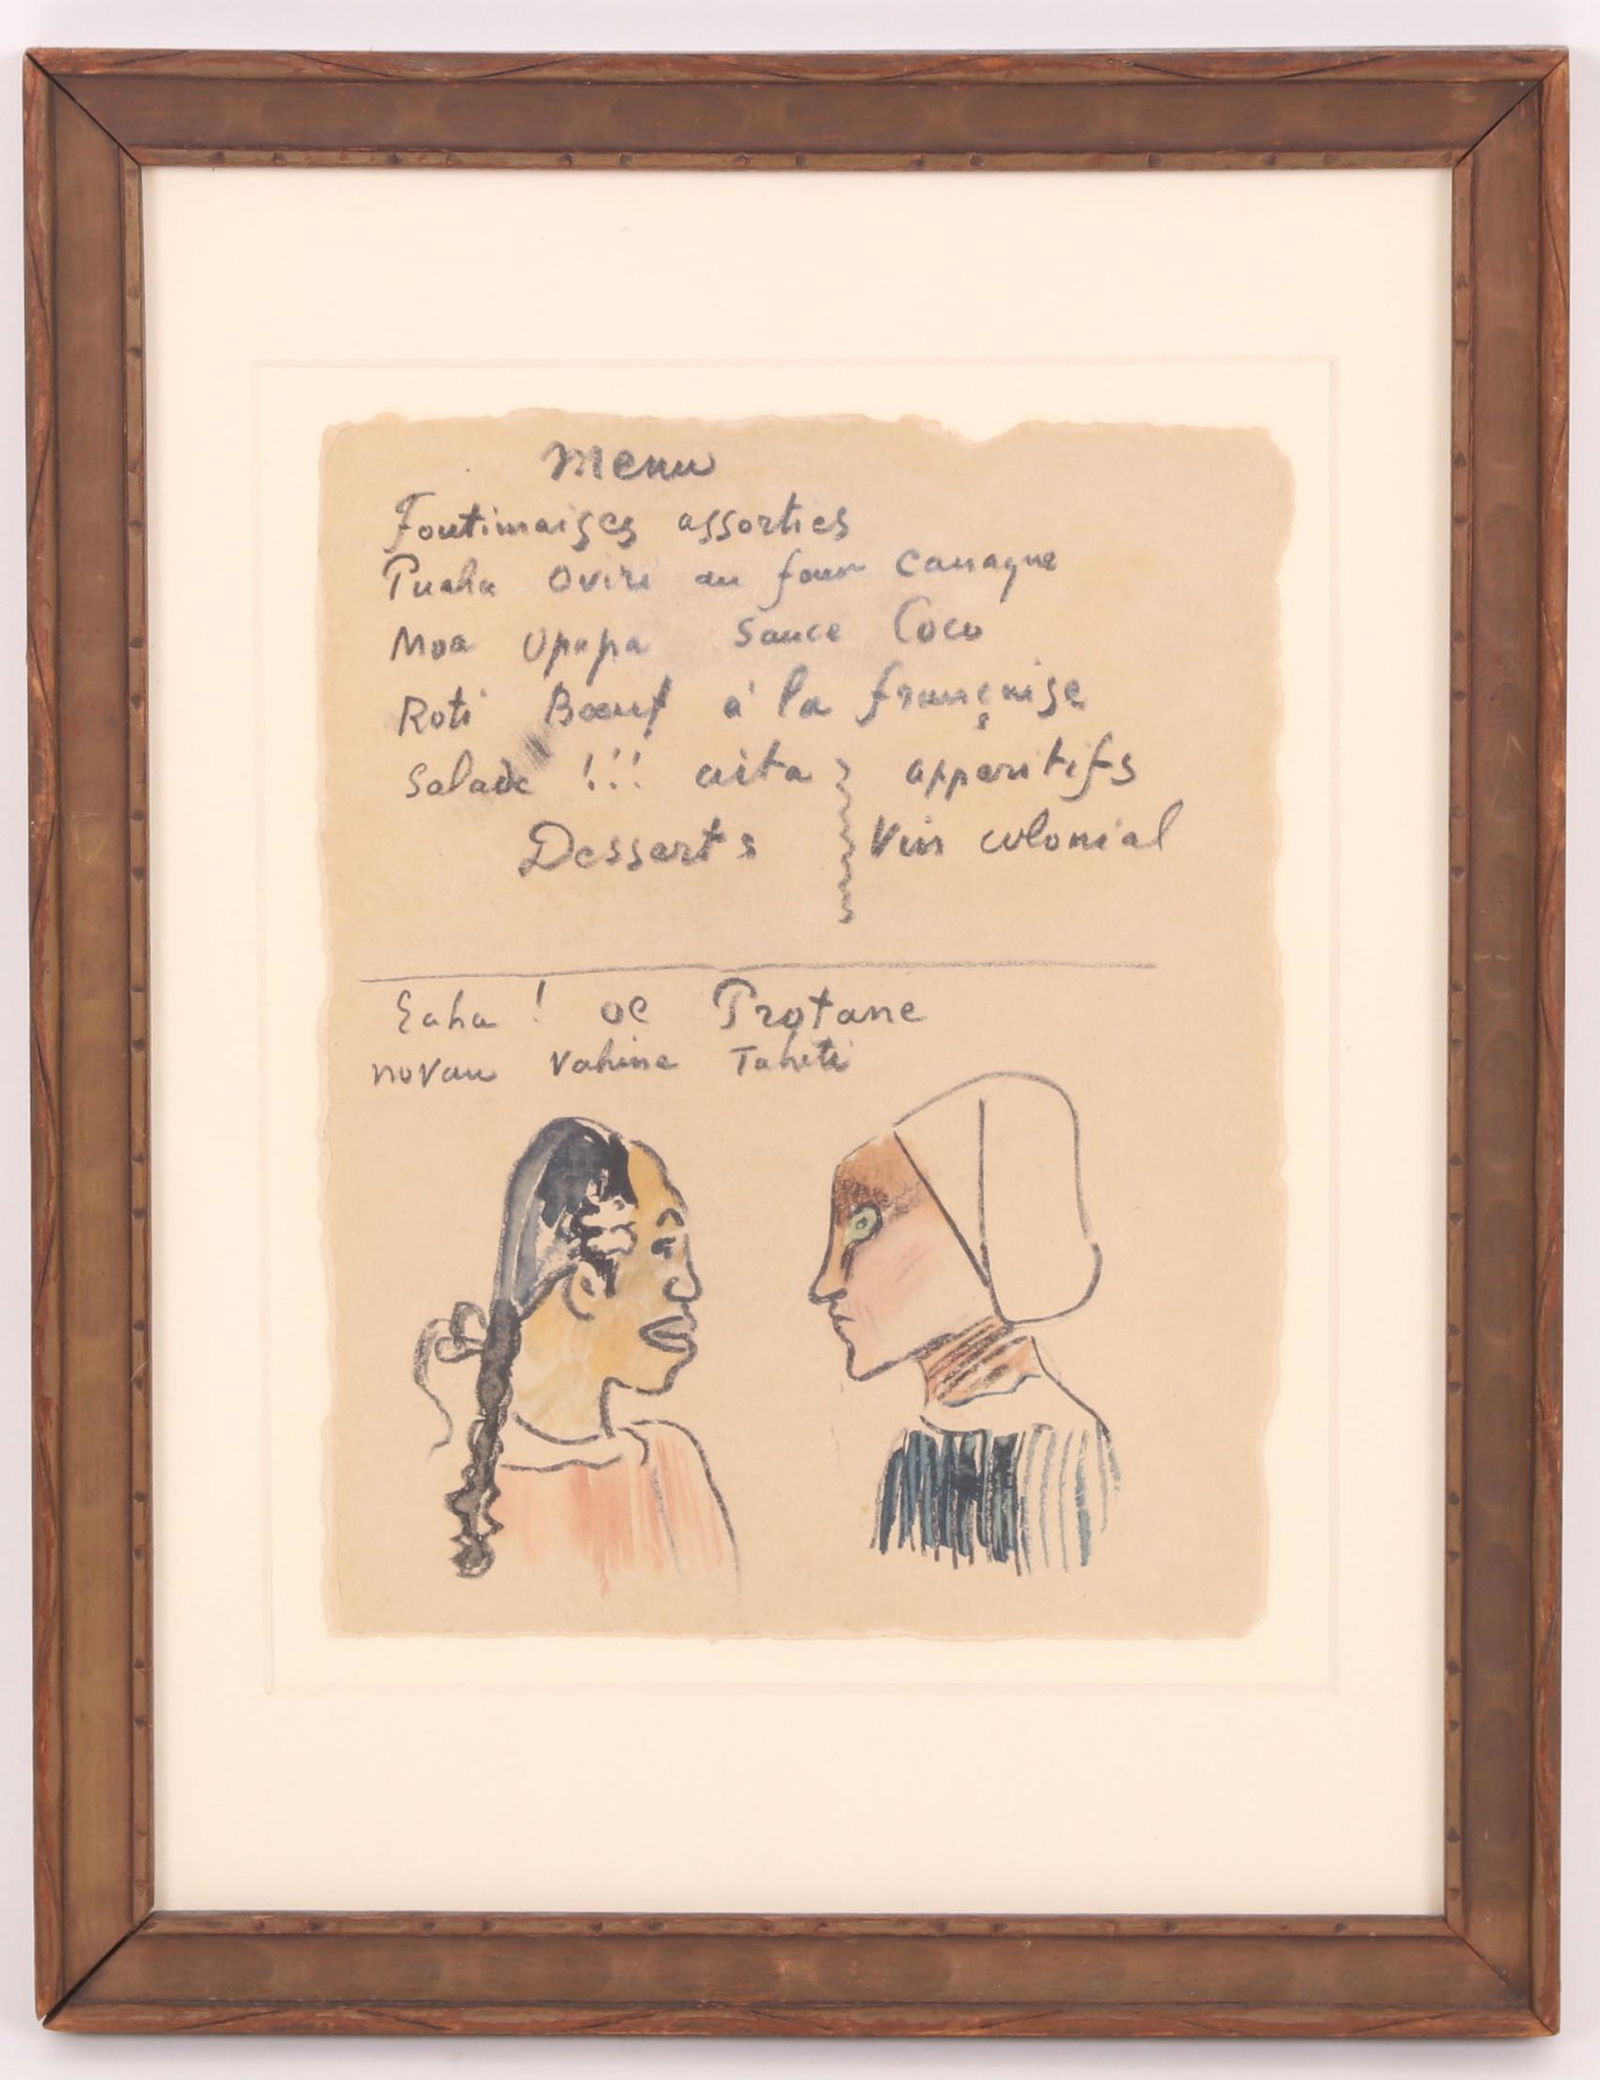 Menu
Foutimaises assorties
Puaha Oviri au four Canaque
Moa Opapa Sauce Coco
Roti Bœuf à la française
Salade !!! aita apparitifs
Desserts Vin colonial
Eaha ! oe Protane
novau Vahine Tahiti